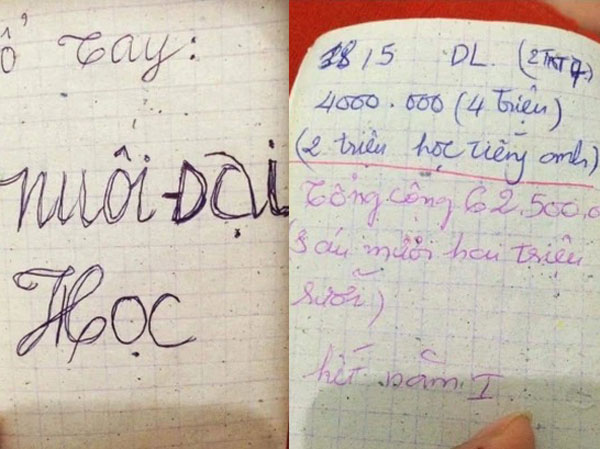 ổ Tay:
Nuôi Đại
Học
18/5 DL.
4000.000 (4 triệu)
(2 triệu học tiếng anh)
Tổng cộng 62.500.0
(sáu mươi hai triệu
rưỡi)
hết năm I